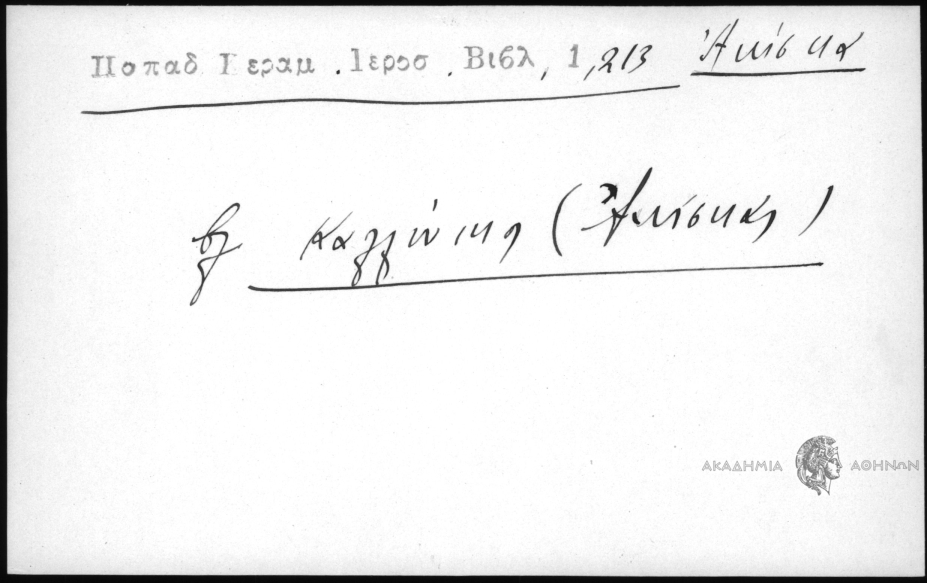 Παπαδ Κεραμ . Ιεροσ . Βιβλ, 1,213 Ἀκίσκα
βλ Καλλίνικος (Ἀκίσκας)
ΑΚΑΔΗΜΙΑ ΑΘΗΝΩΝ